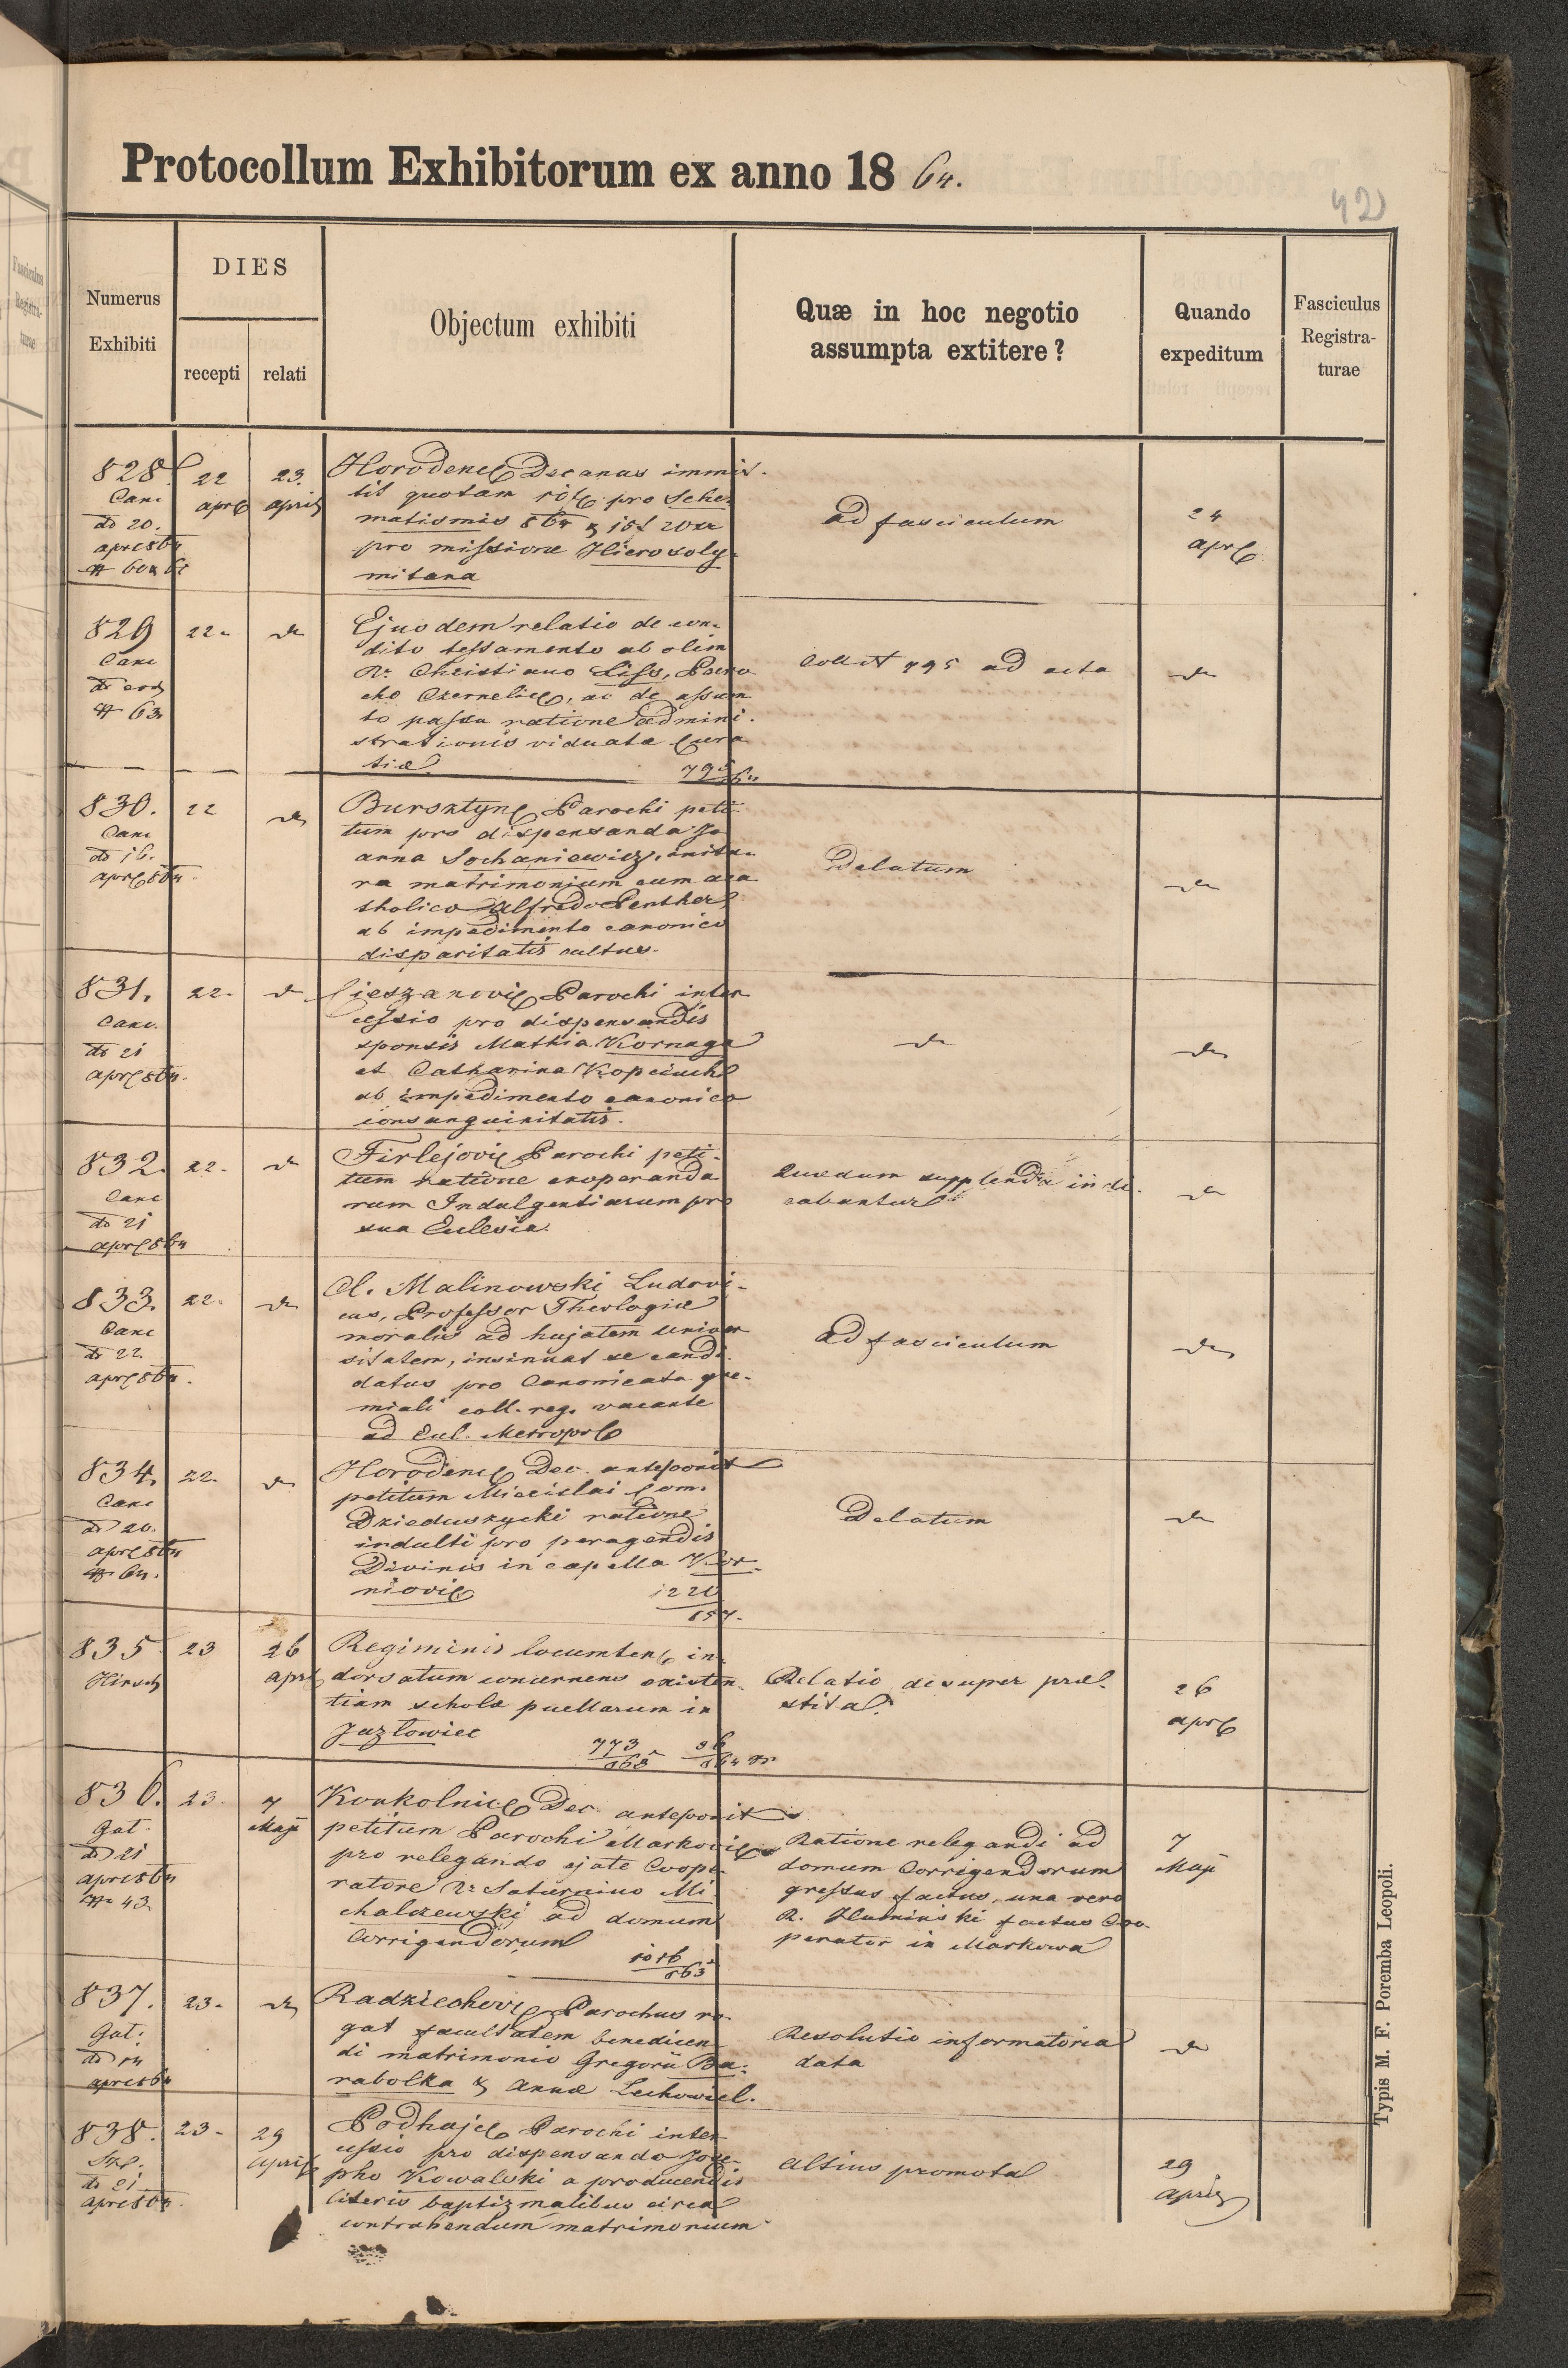 Protocollum Exhibitorum ex anno 18 64.
42
Numerus
Exhibiti
DIES
recepti
relati
Objectum exhibiti
Quæ in hoc negotio
assumpta extitere?
Quando
expeditum
Fasciculus
Registra-
turae
828
Canc
do 20.
apr 864
22
apr
23.
april
Horodenc Decanus immit-
tit quotam pro Sche-
matismis 864
pro missione Hierosoly-
mitana
ad fasciculum
24
apr
829
Canc
63
22.
do
Ejusdem relatio de con-
dito testamento ab olim
Rr. Christiano Liss, Paro-
cho Czernelic, ac de assum-
to passu ratione admini-
strationis viduatæ Cura-
tiæ
795
Coll N 795 ad acta
do
830.
Canc
do 16.
apr 864
22
do
Bursztyn Parochi peti-
tum pro dispensanda Jo-
anna Sochaniewicz, initu-
ra matrimonium cum aca-
tholico Alfredo
ab impedimento canonico
disparitatis cultus.
Delatum
do
831.
Canc.
do 21
apr 864.
22.
do
Cieszanovic Parochi inter-
cessio pro dispensandis
sponsis Mathia Kornaga
et Catharina Kopciuch
ab impedimento canonico
consanguinitatis.
do
do
832.
Canc
do 21
apr 864
22.
do
Firlejovic Parochi peti-
tum ratione exoperanda-
rum Indulgentiarum pro
sua Ecclesia.
Quædam supplenda indi-
cabantur
do
833.
Canc
do 22.
apr 864.
22.
do
Cl. Malinowski Ludovi-
cus, Professor Theologiæ
moralis ad hujatem Univer-
sitatem, insinuat se candi-
datus pro Canonicatu gre-
miali coll. reg. vacante
ad Eccl. Metropol
ad fasciculum
do
834.
Canc
do 20.
apr 864
64.
22.
do
Horodenc Dec. anteponit
petitum Miecislai Com.
Dzieduszycki ratione
indulti pro peragendis
Divinis in capella Kor-
niovic
1220
857.
Delatum
do
835
Hirsch
23
26
apr
Regiminis locumten in-
dorsatum concernens existen-
tiam scholæ puellarum in
Jazlowiec
773
863
Relatio desuper præ-
stita.
26
apr
836.
Gat.
do 21
apr 864
43.
23.
7
Maji
Konkolnic Dec. anteponit
petitum Parochi Markovic
pro relegando ejate Coope-
ratore Rr. Saturnino Mi-
chalczewski ad domum
Corrigendorum
1016
863
Ratione relegandi ad
domum Corrigendorum
gressus factus, una vero
R. Huminski factus Coo-
perator in Markowa
7
Maji
837.
Gat.
do 14
apr 864
23.
do
Radziechov Parochus ro-
gat facultatem benedicen-
di matrimonio Gregorii Ba-
rabolka & Annæ Lechowicl.
Resolutio informatoria
data
do
838.
do 21
apr 864.
23.
29
april
Podhajc Parochi inter-
cessio pro dispensando Jose-
pho Kowalski a producendis
literis baptizmalibus circa
contrahendum matrimonium
altius promota
29
april
Typis M. F. Poremba Leopoli.